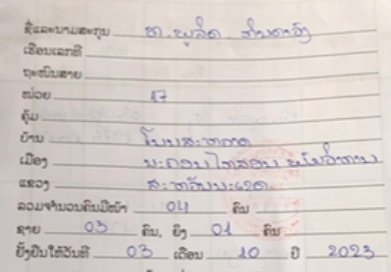 ຊື່ແລະນາມສະກຸນ ທ. ພູລິດ
ເຮືອນເລກທີ
ຖະໜົນສາຍ
ໜ່ວຍ 17
ຄຸ້ມ
ບ້ານ ໂນນສະຫວາດ
ເມືອງ ນະຄອນ ໄກສອນ ພົມວິຫານ
ແຂວງ ສະຫວັນນະເຂດ
ລວມຈຳນວນຄົນມີໜ້າ 04 ຄົນ
ຊາຍ 03 ຄົນ, ຍິງ 01 ຄົນ
ຍັ້ງຢືນໃຫ້ວັນທີ 03 ເດືອນ 10 ປີ 2023